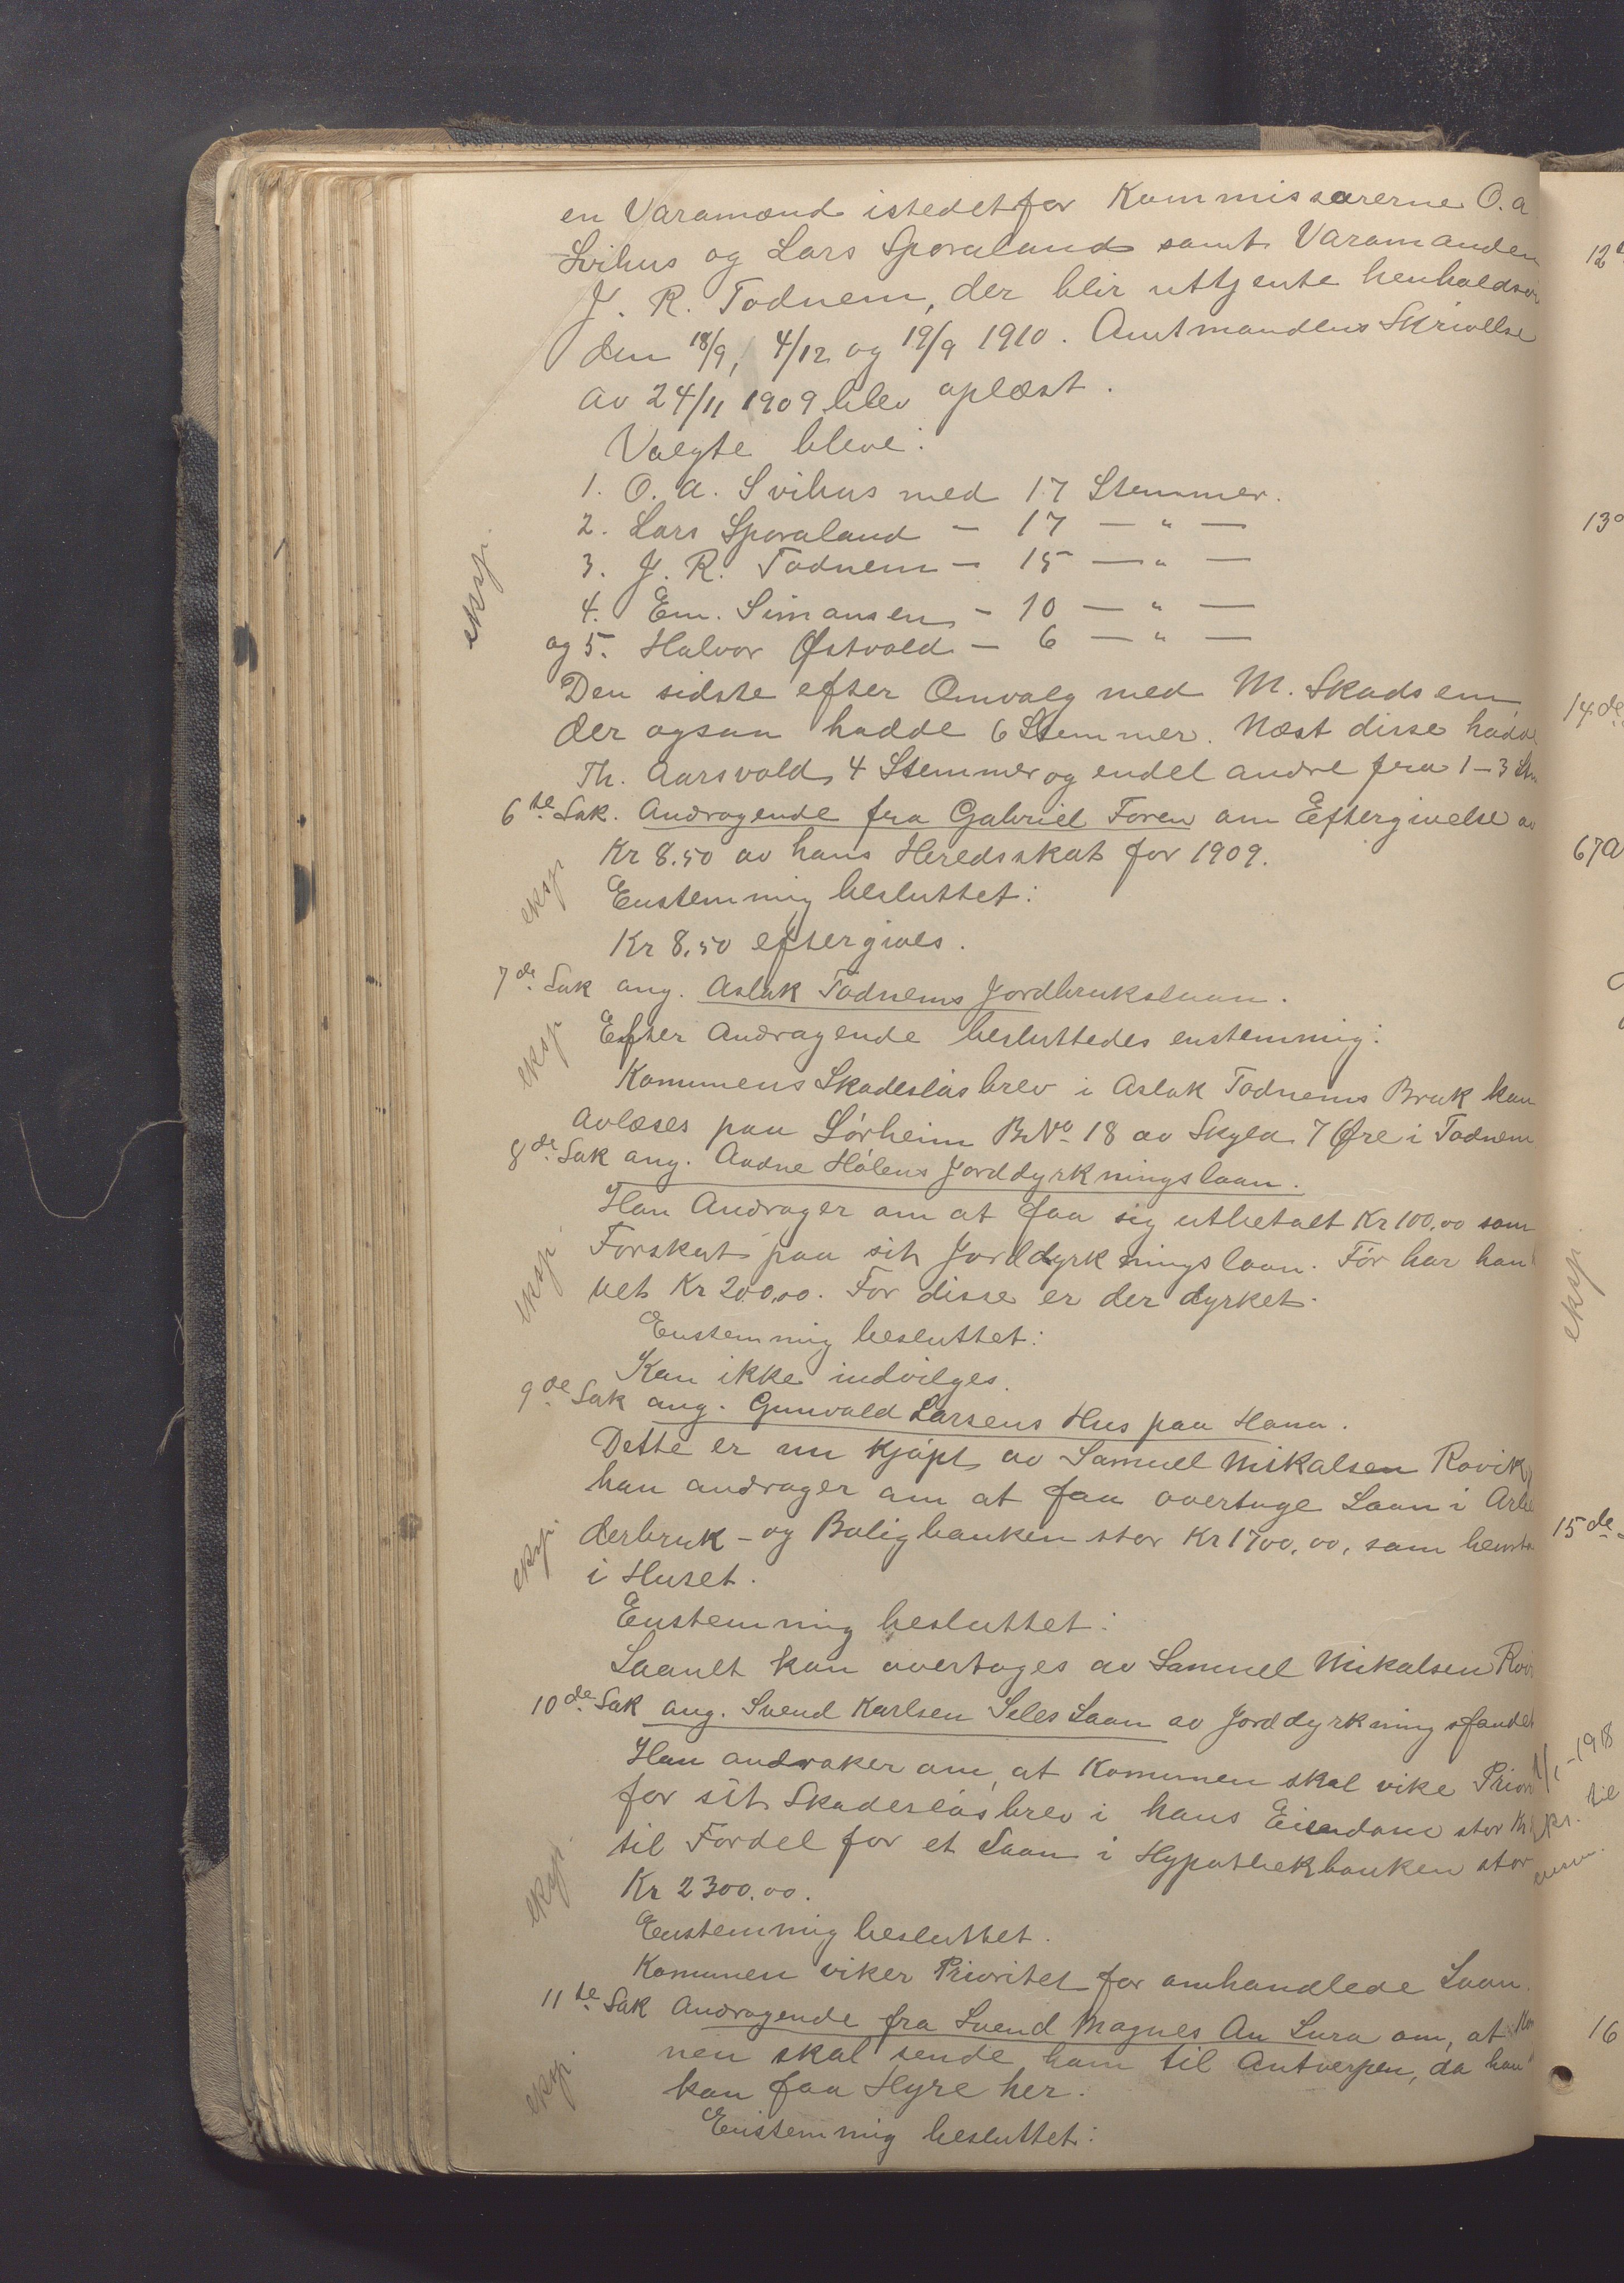 en Varamænd istedetfor Kommissærerne O. A.
Svihus og Lars Sporaland samt Varamanden
J. R. Todnem, der blir uttjente henholdsvi
den 18/9, 4/12 og 19/9 1910. Amtmandens Skrivelse
av 24/11 1909 blev oplæst.
Valgte bleve:
1. O. A. Svihus med 17 Stemmer.
2. Lars Sporaland - 17 — " —
3. J. R. Todnem - 15 — " —
4. Em. Simonsen - 10 — " —
og 5. Halvor Østvold - 6 — " —
eksp.
Den sidste efter Omvalg med M. Skadsem,
der ogsaa hadde 6 Stemmer. Næst disse hadde
Th. Aarsvold 4 Stemmer og endel andre fra 1-3 Stm
6te Sak. Andragende fra Gabriel Foren om Eftergivelse av
Kr 8.50 av hans Heredsskat for 1909.
eksp.
Enstemmig besluttet:
Kr 8.50 eftergives.
7de Sak ang. Aslak Todnems Jordbrukslaan.
Efter Andragende besluttedes enstemmig:
eksp.
Kommunens Skadesløsbrev i Aslak Todnems Bruk kan
avlæses paa Sørheim B.No 18 av Skyld 7 Øre i Todnem
8de Sak ang. Andne Hølens Jorddyrkningslaan.
Han Andrager om at faa sig utbetalt Kr 100.00 som
Forskut paa sit Jorddyrkningslaan. Før har han
eksp.
vet Kr 200.00. For disse er der dyrket.
Enstemmig besluttet:
Kan ikke indvilges.
9de Sak ang. Gunvald Larsens Hus paa Hana.
Dette er nu kjøpt av Samuel Mikalsen Rovik,
han andrager om at faa overtage Laan i Arbe
derbruk- og Boligbanken stor Kr 1700.00, som hensta
eksp.
i Huset.
Enstemmig besluttet:
Laanet kan overtages av Samuel Mikalsen Rovi
10de Sak ang. Svend Karlsen Seles Laan av Jorddyrkningsfondet
Han andraker om, at Kommunen skal vike Priori
for sit Skadesløsbrev i hans Eiendom stor Kr
til Fordel for et Laan i Hypothekbanken stor
eksp.
Kr 2300.00.
Enstemmig besluttet.
Kommunen viker Prioritet for omhandlede Laan.
11te Sak Andragende fra Svend Magnes An Lura om, at Kom
nen skal sende ham til Antverpen, da han
eksp.
kan faa Hyre her.
Enstemmig besluttet:
12
13
14de
67a
eksp.
15de
1/1-1918
til
16